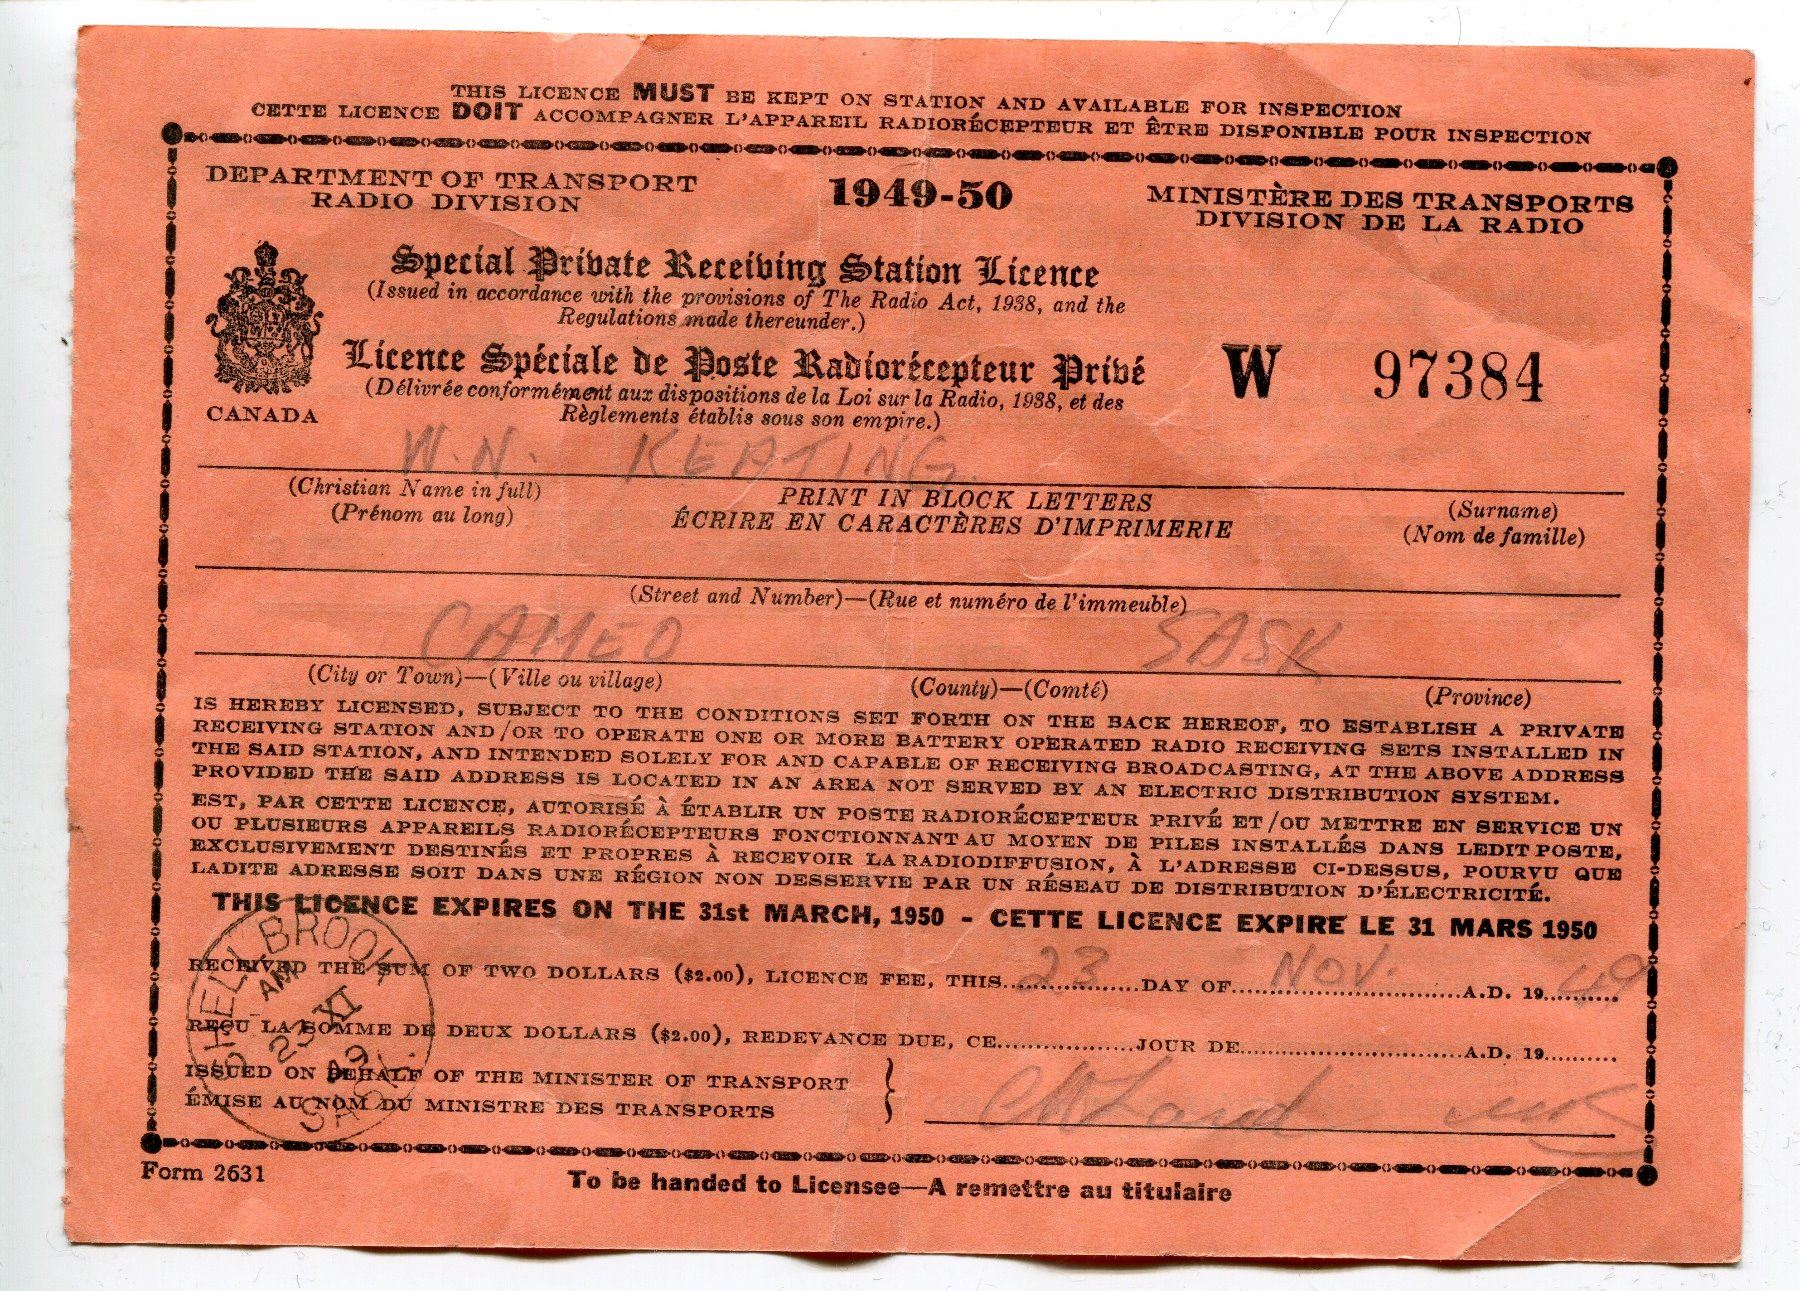 THIS LICENCE MUST BE KEPT ON STATION AND AVAILABLE FOR INSPECTION
CETTE LICENCE DOIT ACCOMPAGNER L'APPAREIL RADIORÉCEPTEUR ET ÊTRE DISPONIBLE POUR INSPECTION
DEPARTMENT OF TRANSPORT
RADIO DIVISION
1949-50
MINISTÈRE DES TRANSPORTS
DIVISION DE LA RADIO
Special Private Receiving Station Licence
(Issued in accordance with the provisions of The Radio Act, 1938, and the
Regulations made thereunder.)
Licence Spéciale de Poste Radiorécepteur Privé
(Délivrée conformément aux dispositions de la Loi sur la Radio, 1938, et des
Règlements établis sous son empire.)
CANADA
W 97384
W.N. KEATING.
(Christian Name in full)
(Prénom au long)
PRINT IN BLOCK LETTERS
ÉCRIRE EN CARACTÈRES D'IMPRIMERIE
(Surname)
(Nom de famille)
(Street and Number)—(Rue et numéro de l'immeuble)
CAMEO SASK
(City or Town)—(Ville ou village) (County)—(Comté) (Province)
IS HEREBY LICENSED, SUBJECT TO THE CONDITIONS SET FORTH ON THE BACK HEREOF, TO ESTABLISH A PRIVATE
RECEIVING STATION AND/OR TO OPERATE ONE OR MORE BATTERY OPERATED RADIO RECEIVING SETS INSTALLED IN
THE SAID STATION, AND INTENDED SOLELY FOR AND CAPABLE OF RECEIVING BROADCASTING, AT THE ABOVE ADDRESS
PROVIDED THE SAID ADDRESS IS LOCATED IN AN AREA NOT SERVED BY AN ELECTRIC DISTRIBUTION SYSTEM.
EST, PAR CETTE LICENCE, AUTORISÉ À ÉTABLIR UN POSTE RADIORÉCEPTEUR PRIVÉ ET/OU METTRE EN SERVICE UN
OU PLUSIEURS APPAREILS RADIORÉCEPTEURS FONCTIONNANT AU MOYEN DE PILES INSTALLÉS DANS LEDIT POSTE,
EXCLUSIVEMENT DESTINÉS ET PROPRES À RECEVOIR LA RADIODIFFUSION, À L'ADRESSE CI-DESSUS, POURVU QUE
LADITE ADRESSE SOIT DANS UNE RÉGION NON DESSERVIE PAR UN RÉSEAU DE DISTRIBUTION D'ÉLECTRICITÉ.
THIS LICENCE EXPIRES ON THE 31st MARCH, 1950 - CETTE LICENCE EXPIRE LE 31 MARS 1950
RECEIVED THE SUM OF TWO DOLLARS ($2.00), LICENCE FEE, THIS 23 DAY OF NOV. A.D. 19 49
REÇU LA SOMME DE DEUX DOLLARS ($2.00), REDEVANCE DUE, CE JOUR DE A.D. 19
ISSUED ON BEHALF OF THE MINISTER OF TRANSPORT
ÉMISE AU NOM DU MINISTRE DES TRANSPORTS
SHELLBROOK
AM
23 XI
49
SASK.
Form 2631
To be handed to Licensee—A remettre au titulaire